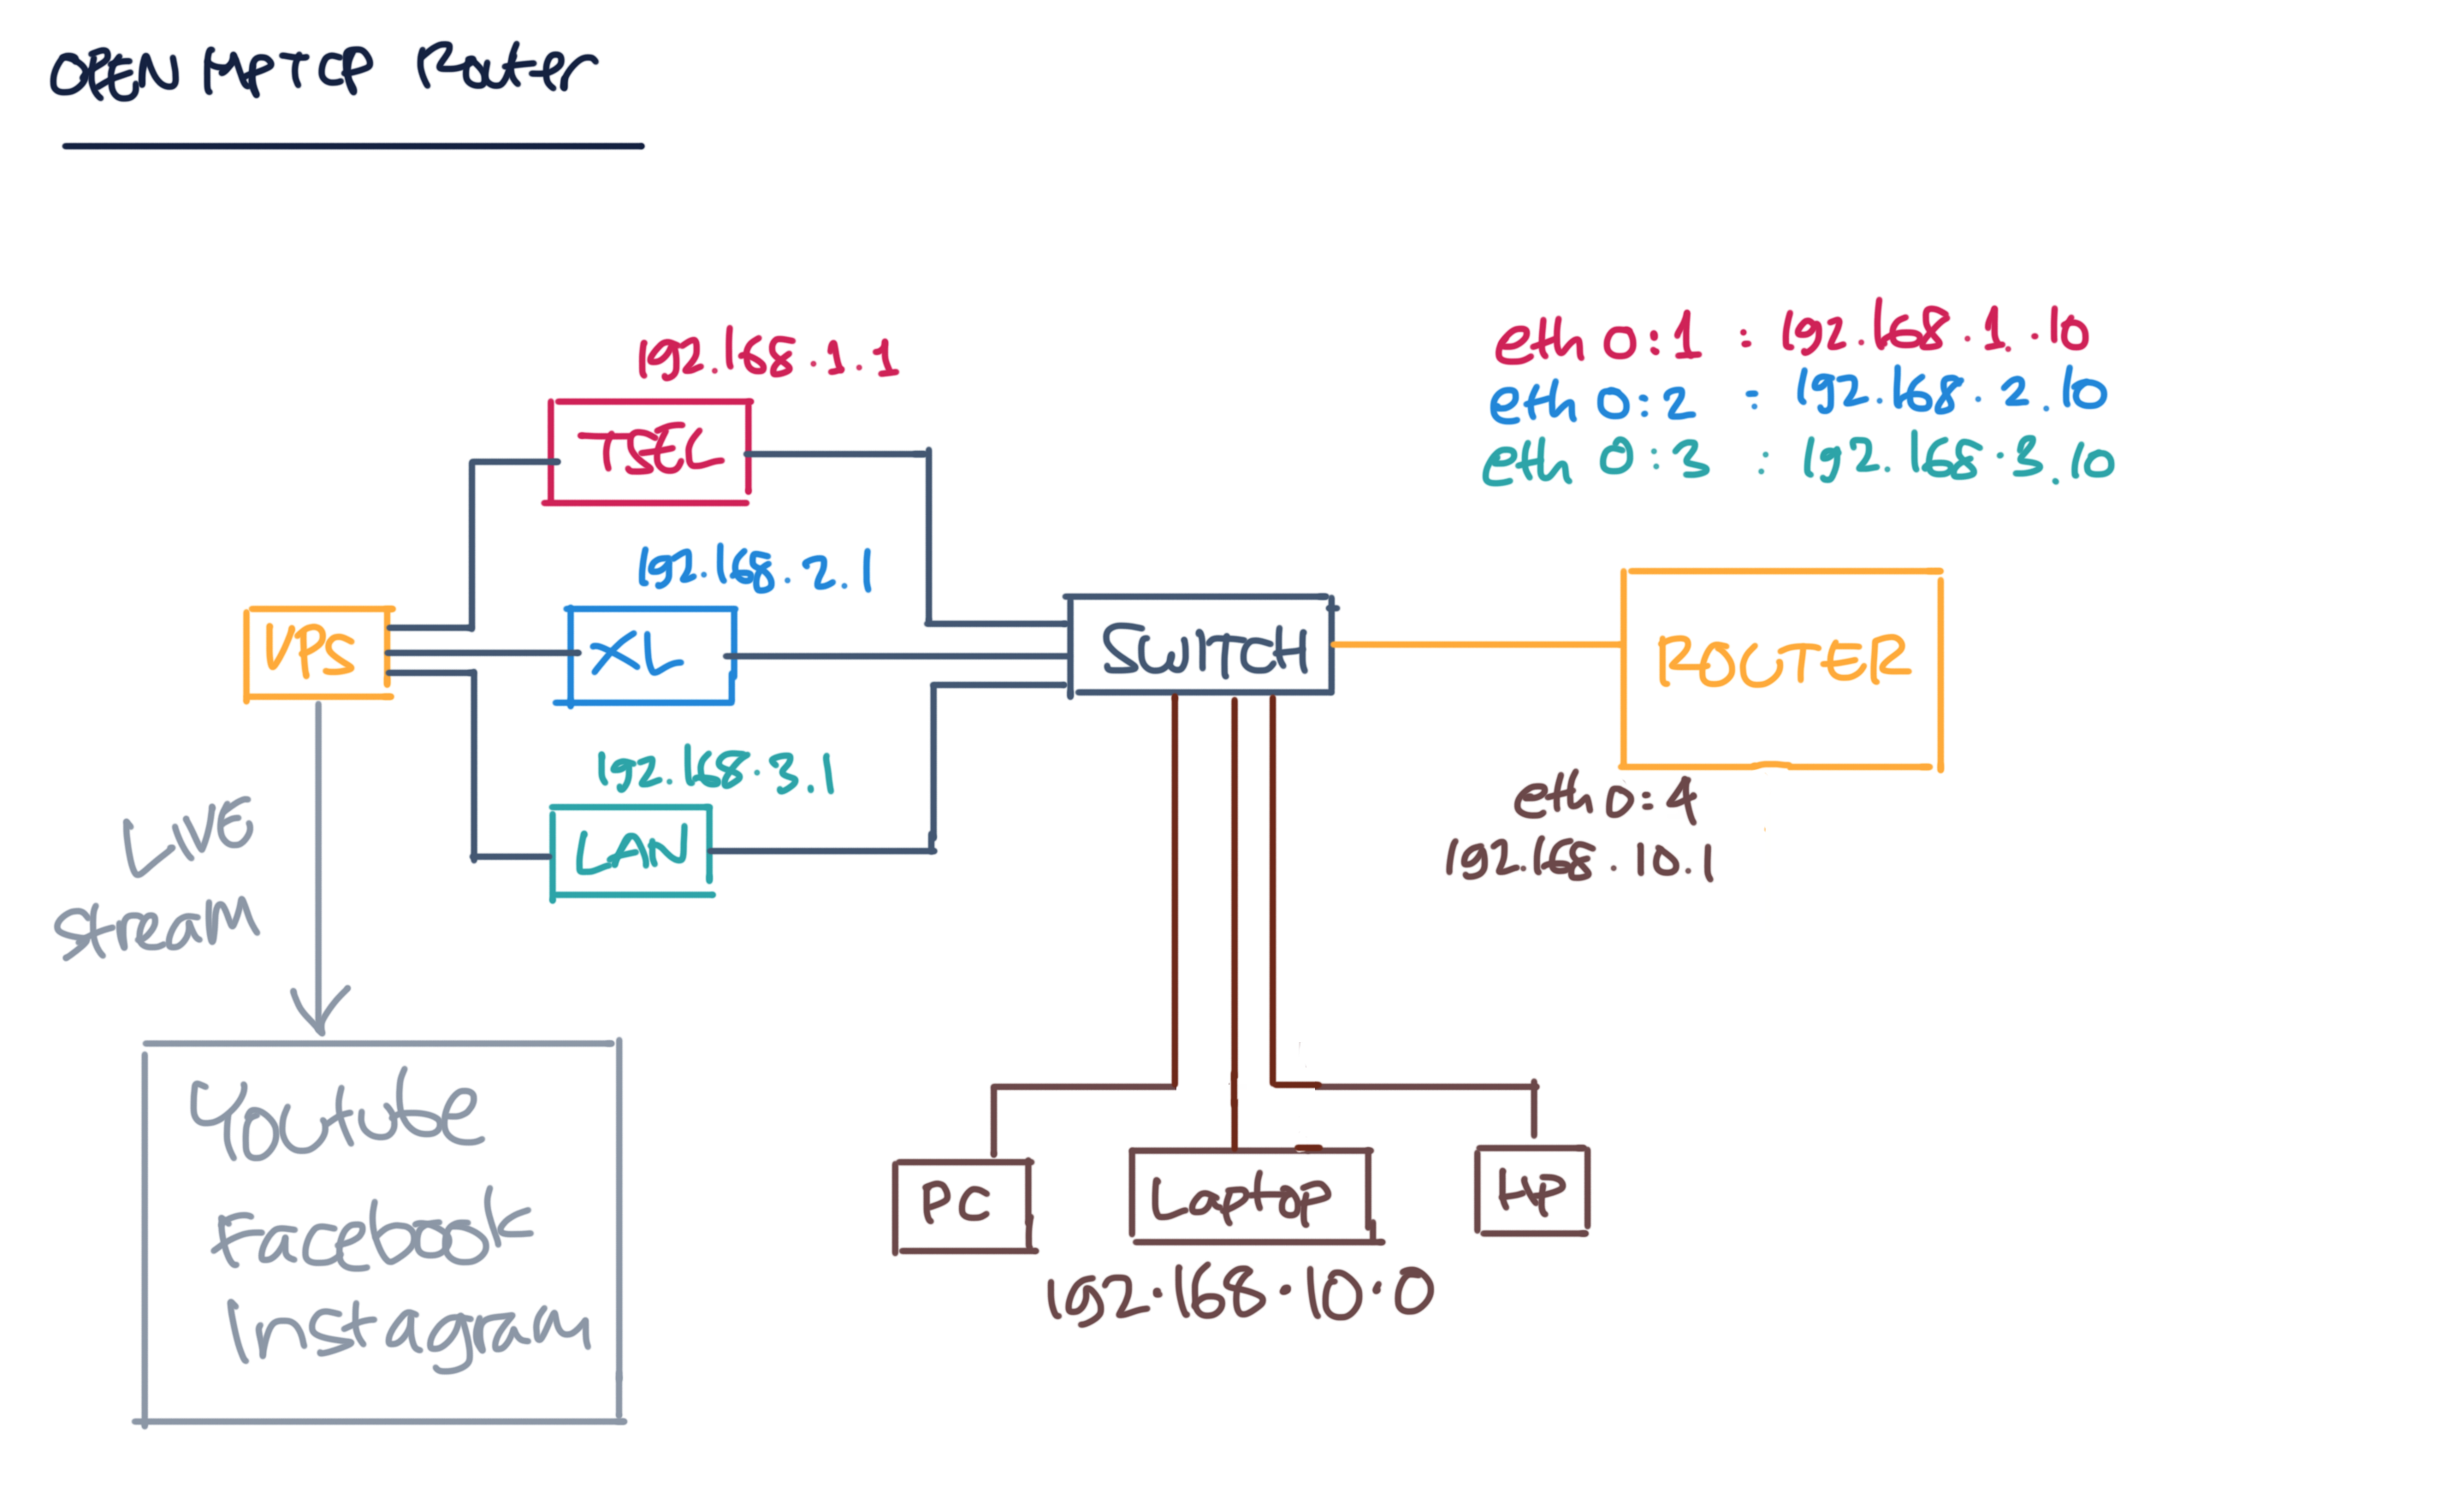 OPEN MPTCP Router
192.168.1.1
TSEL
192.168.2.1
XL
192.168.3.1
LAN
VPS
SWITCH
eth 0:1 : 192.168.1.10
eth 0:2 : 192.168.2.10
eth 0:3 : 192.168.3.10
ROUTER
eth 0:4
192.168.10.1
LIVE
stream
Youtube
Facebook
Instagram
PC
Laptop
HP
192.168.10.0